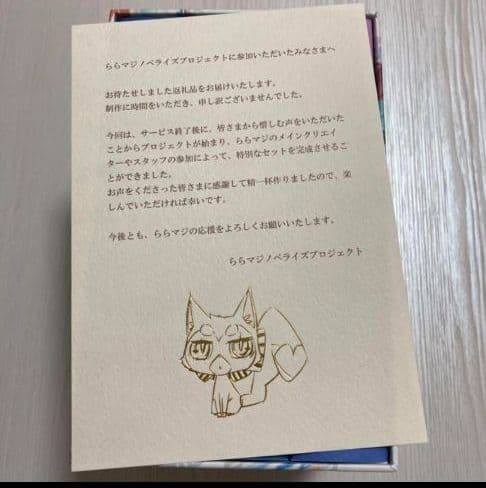 ららマジノベライズプロジェクトに参加いただいたみなさまへ
お待たせしました返礼品をお届けいたします。
制作に時間をいただき、申し訳ございませんでした。
今回は、サービス終了後に、皆さまから惜しむ声をいただいた
ことからプロジェクトが始まり、ららマジのメインクリエイ
ターやスタッフの参加によって、特別なセットを完成させるこ
とができました。
お声をくださった皆さまに感謝して精一杯作りましたので、楽
しんでいただければ幸いです。
今後とも、ららマジの応援をよろしくお願いいたします。
ららマジノベライズプロジェクト